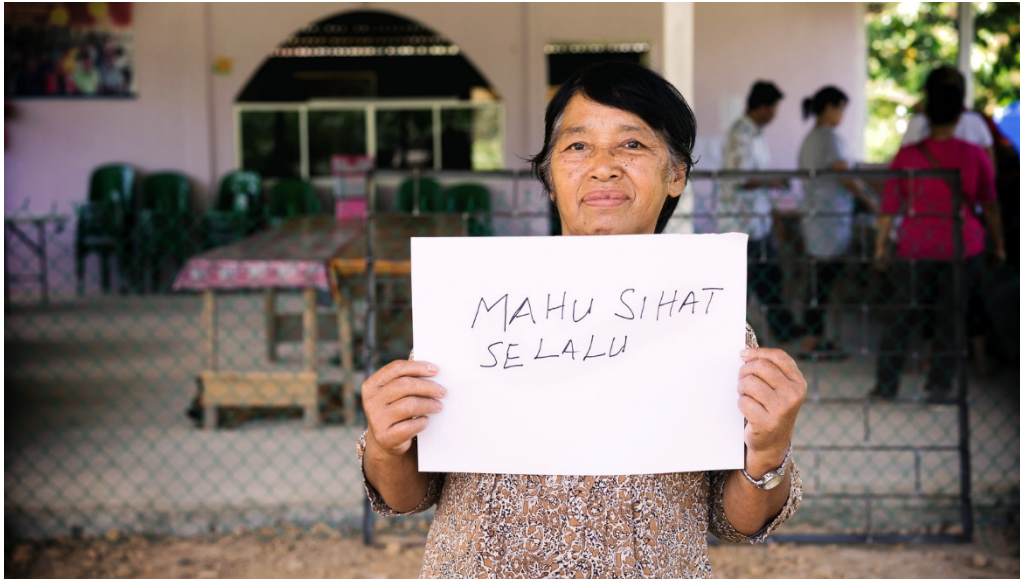 MAHU SIHAT
SELALU